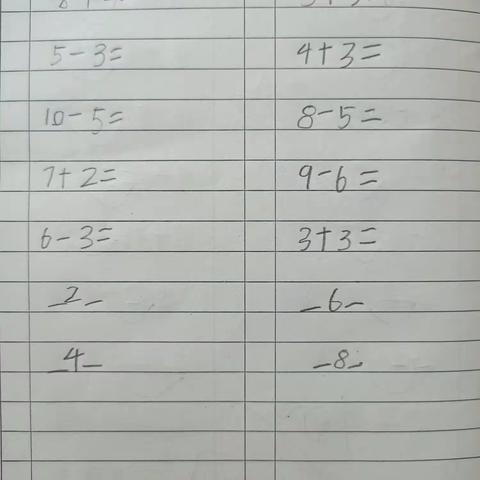 5-3= 4+3=
10-5= 8-5=
7+2= 9-6=
6-3= 3+3=
_2_ _6_
_4_ _8_